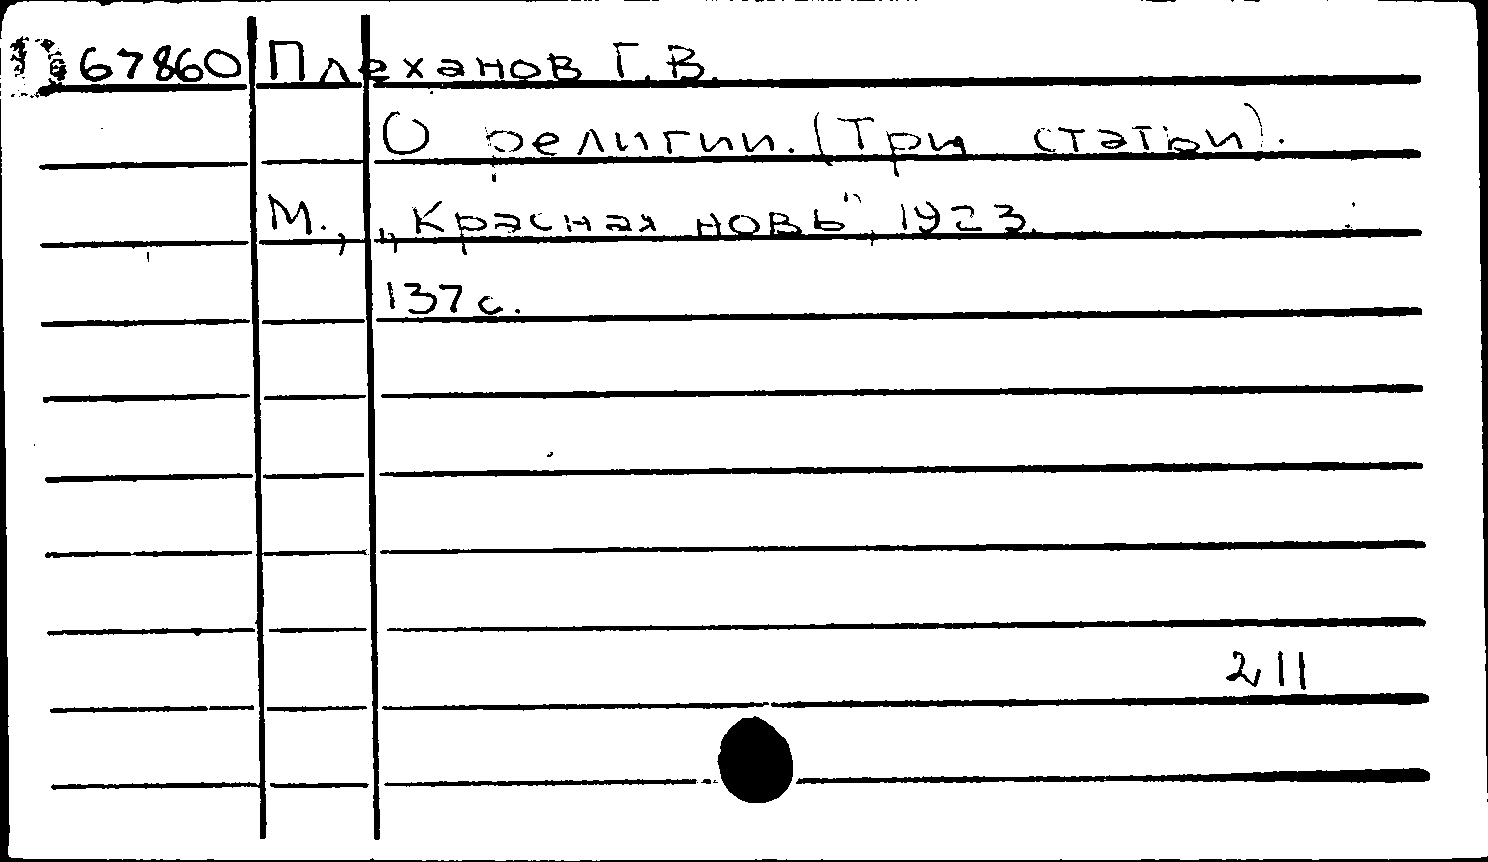 D 67860 Плеханов Г.В.
О религии. (Три статьи).
М., „Красная новь", 1923.
137 с.
211